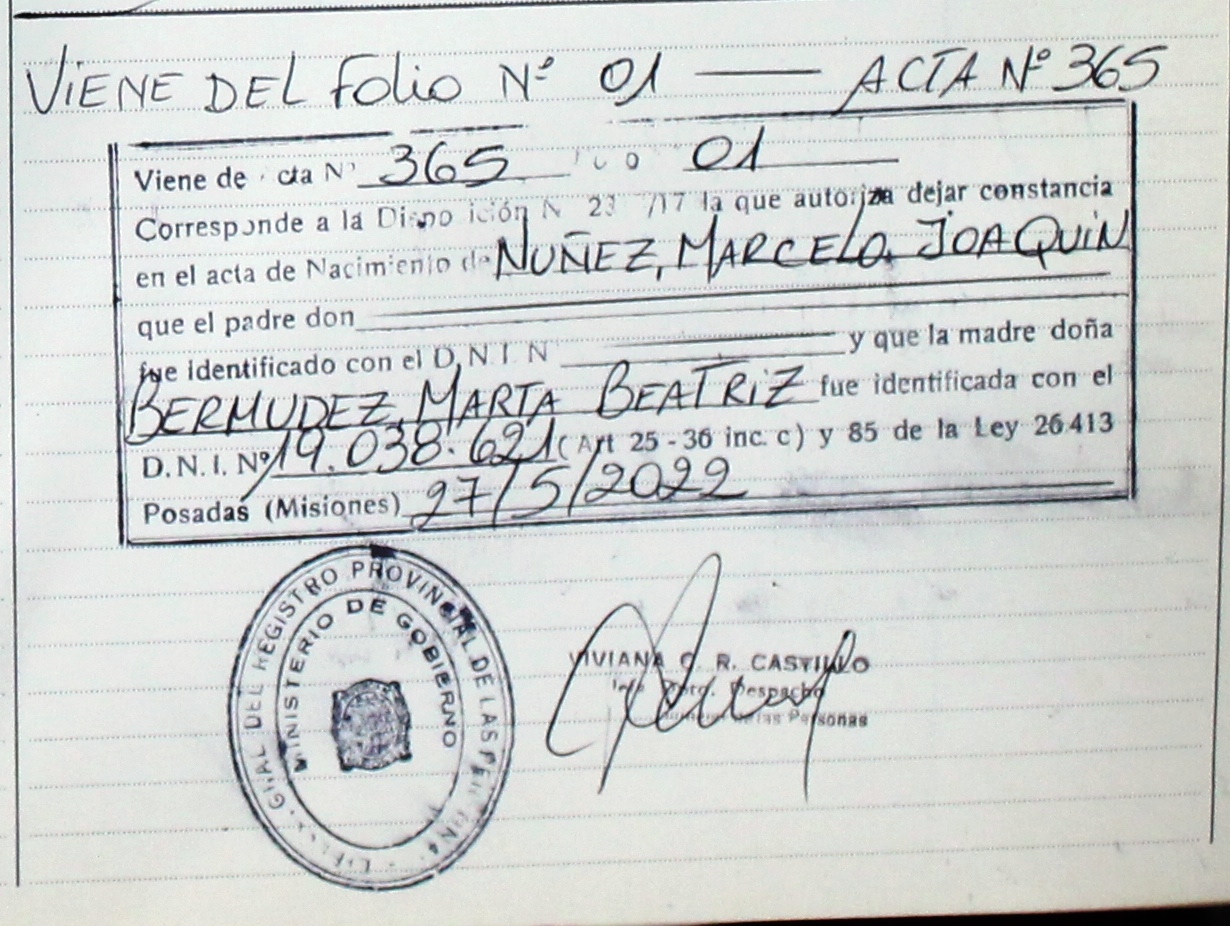 VIENE DEL Folio Nº 01 —— ACTA Nº 365
Viene de cta Nº 365 01
Corresponde a la Dispo ición N 23 /17 la que autoriza dejar constancia
en el acta de Nacimiento de NUÑEZ, MARCELO JOAQUIN
que el padre don
fue identificado con el D.N.I. N y que la madre doña
BERMUDEZ, MARTA BEATRIZ fue identificada con el
D.N.I. Nº 19.038.621 (Art 25 - 36 inc. c) y 85 de la Ley 26413
Posadas (Misiones) 27/5/2022
GRAL DEL REGISTRO PROVINCIAL DE LAS
MINISTERIO DE GOBIERNO
VIVIANA C. R. CASTILLO
Dpto. Despacho
de las Personas